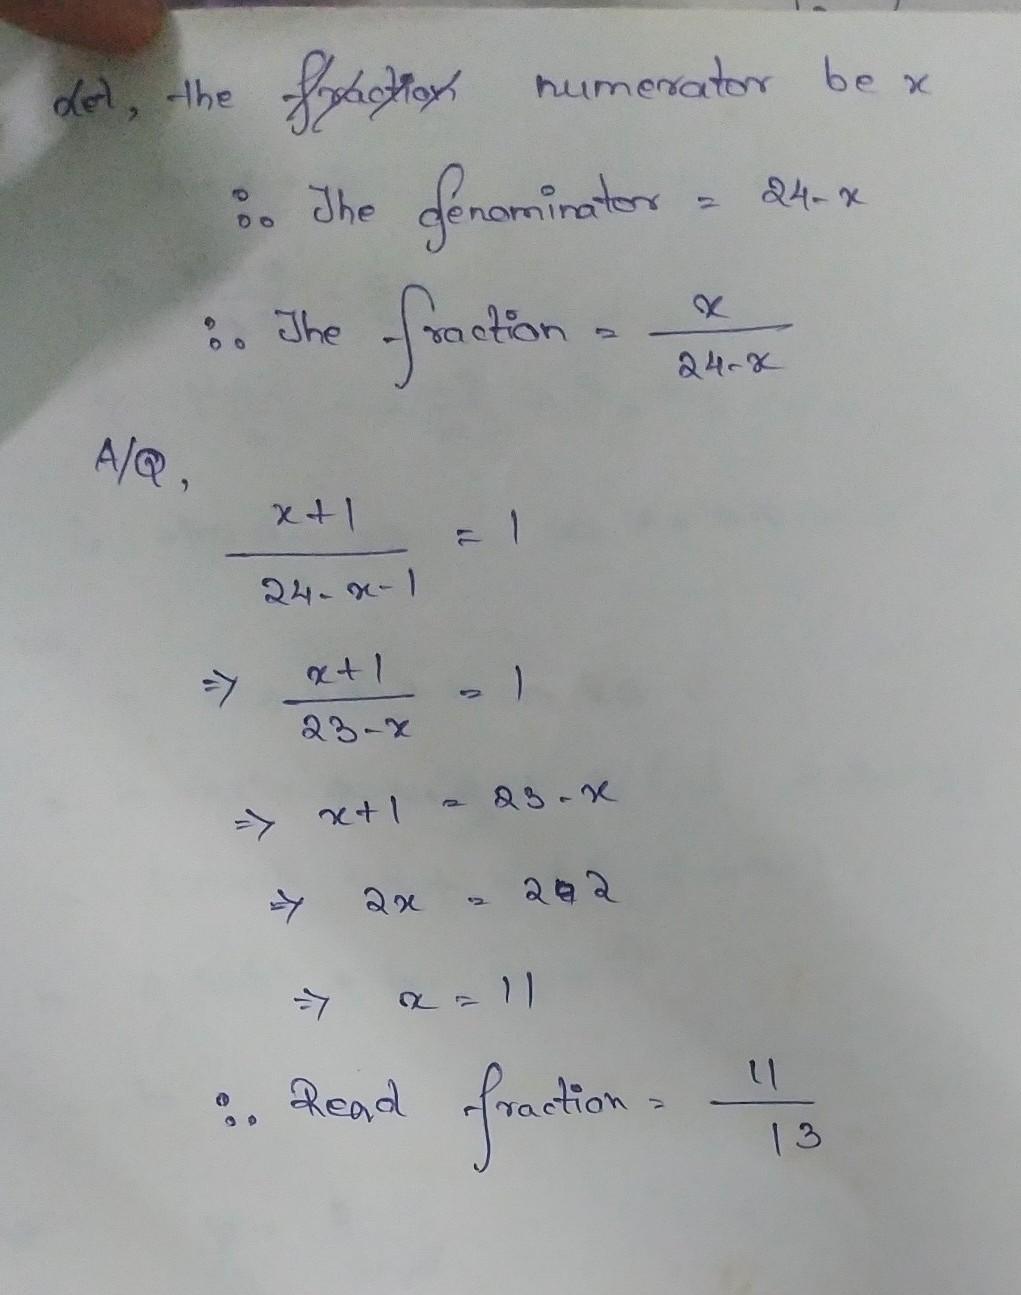 Let, the numerator be x
∴ The denominator = 24-x
∴ The fraction = x/(24-x)
A/Q,
(x+1)/(24-x-1) = 1
⇒ (x+1)/(23-x) = 1
⇒ x+1 = 23-x
⇒ 2x = 22
⇒ x = 11
∴ Read fraction = 11/13